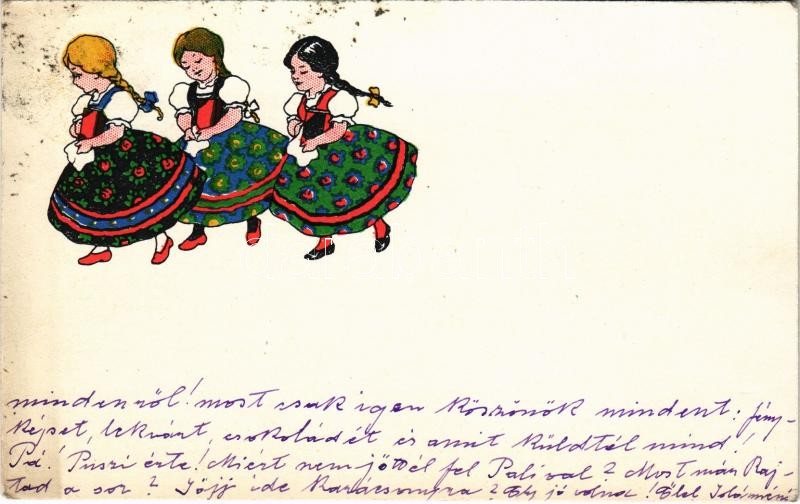 mindenről! most csak igen köszönök mindent: fény-
képset, lekvárt, csokoládét és amit küldtél mind!
Pá! Puszi érte! Miért nem jöttél fel Palival? Most már Raj-
tad a sor? Jöjj ide Karácsonyra? Be jó volna!